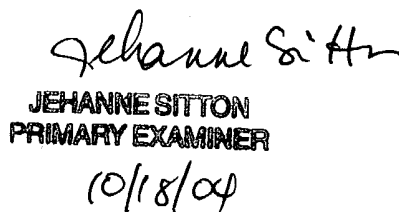 Jehanne Sitton
JEHANNE SITTON
PRIMARY EXAMINER
10/18/04